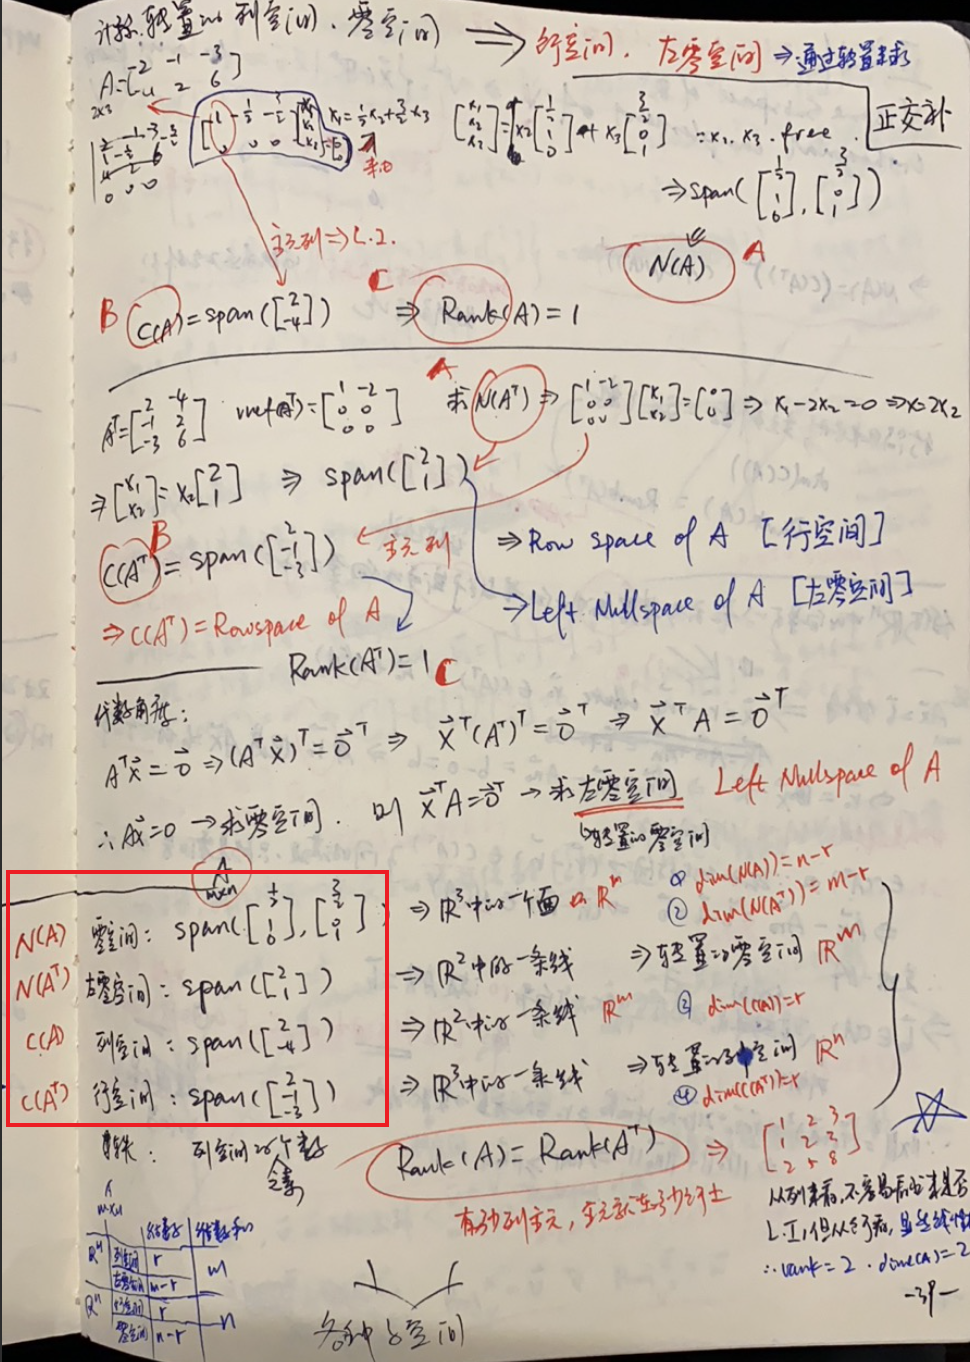 计算:转置的列空间、零空间 ⟹ 行空间、左零空间 ⇒通过转置来求
A=[2 -1 -3
-4 2 6]
2x3
[1 -1/2 -3/2
0 0 0][x1 x2 x3]=[0 0] x1=1/2x2+3/2x3
[x1 x2 x3]=x2[1/2 1 0]+x3[3/2 0 1] x2, x3. free
正交补
⇒span([1/2 1 0],[3/2 0 1])
主元列⇒L.I.
N(A) A
B C(A)=span([2 -4]) C ⇒ Rank(A)=1
A^T=[2 -4
-1 2
-3 6] rref(A^T)=[1 -2
0 0
0 0] A 求N(A^T)⇒[1 -2
0 0
0 0][x1 x2]=[0 0]⇒x1-2x2=0⇒x1=2x2
⇒[x1 x2]=x2[2 1] ⇒ span([2 1])
B C(A^T)=span([2 -1 -3]) 主元列 ⇒Row space of A [行空间]
⇒Left Nullspace of A [左零空间]
⇒C(A^T)=Rowspace of A
Rank(A^T)=1 C
代数角度:
A^T x⃗=0⃗⇒(A^T x⃗)^T=0⃗^T ⇒ x⃗^T(A^T)^T=0⃗^T ⇒ x⃗^T A=0⃗^T
∴Ax⃗=0→求零空间. 则 x⃗^T A=0⃗^T→求左零空间 Left Nullspace of A
转置的零空间
A
m×n
N(A) 零空间:span([1/2 1 0],[3/2 0 1]) ⇒R^3中的一个面 R^n ① dim(N(A))=n-r
② dim(N(A^T))=m-r
N(A^T) 左零空间:span([2 1]) ⇒R^2中的一条线 ⇒转置的零空间 R^m
C(A) 列空间:span([2 -4]) ⇒R^2中的一条线 R^m ③ dim(C(A))=r
C(A^T) 行空间:span([2 -1 -3]) ⇒R^3中的一条线 ⇒转置的列空间 R^n
④ dim(C(A^T))=r
列空间的个数
Rank(A)=Rank(A^T) ⇒ [1 2 3
1 2 3
2 5 8]
有多少列主元,主元就在多少行上
从列来看,不容易看出来是否
L.I,但从行看,显然线性
∴rank=2 . dim(A)=2
A
m×n
维数 维数和
R^m 列空间 r m
左零空间 m-r
R^n 行空间 r n
零空间 n-r
各种子空间
-39-